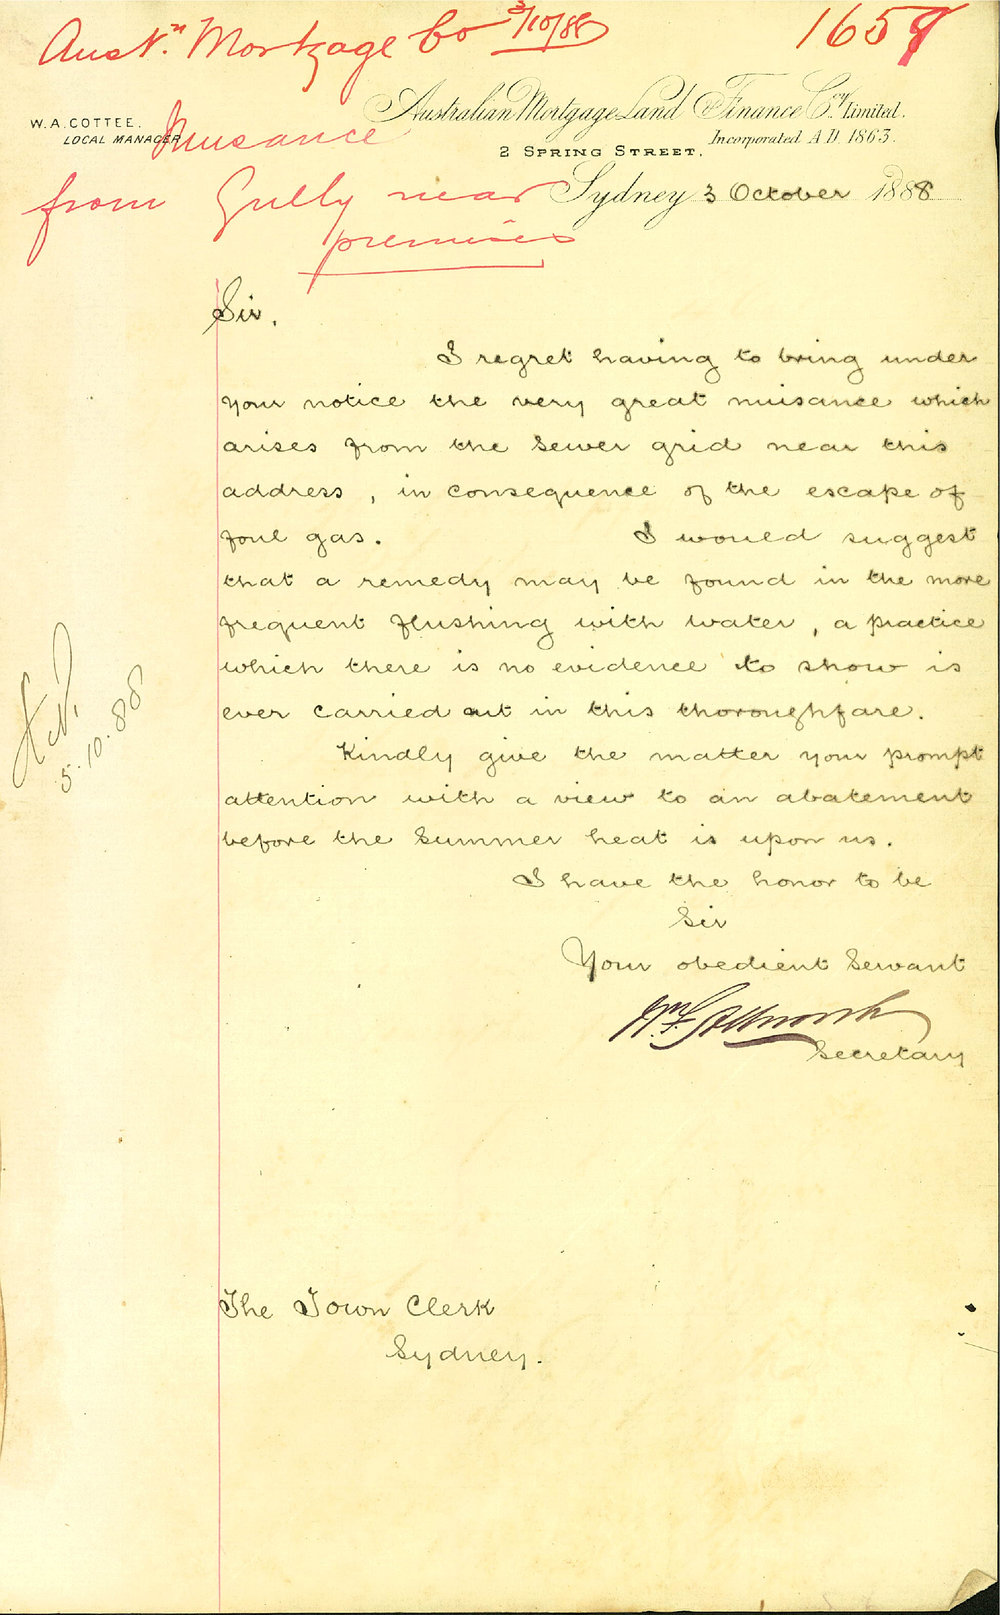 Austn. Mortgage Co 3/10/88
Australian Mortgage Land & Finance Coy. Limited.
W. A. COTTEE.
LOCAL MANAGER
Incorporated A.D. 1863.
Nuisance
2 SPRING STREET.
from Gully near
Sydney 3 October 1888
premises
Sir,
I regret having to bring under
your notice the very great nuisance which
arises from the sewer grid near this
address, in consequence of the escape of
foul gas. I would suggest
that a remedy may be found in the more
frequent flushing with water, a practice
which there is no evidence to show is
ever carried out in this thoroughfare.
Kindly give the matter your prompt
attention with a view to an abatement
before the Summer heat is upon us.
I have the honor to be
Sir
Your obedient Servant
Secretary
5.10.88
The Town Clerk
Sydney.